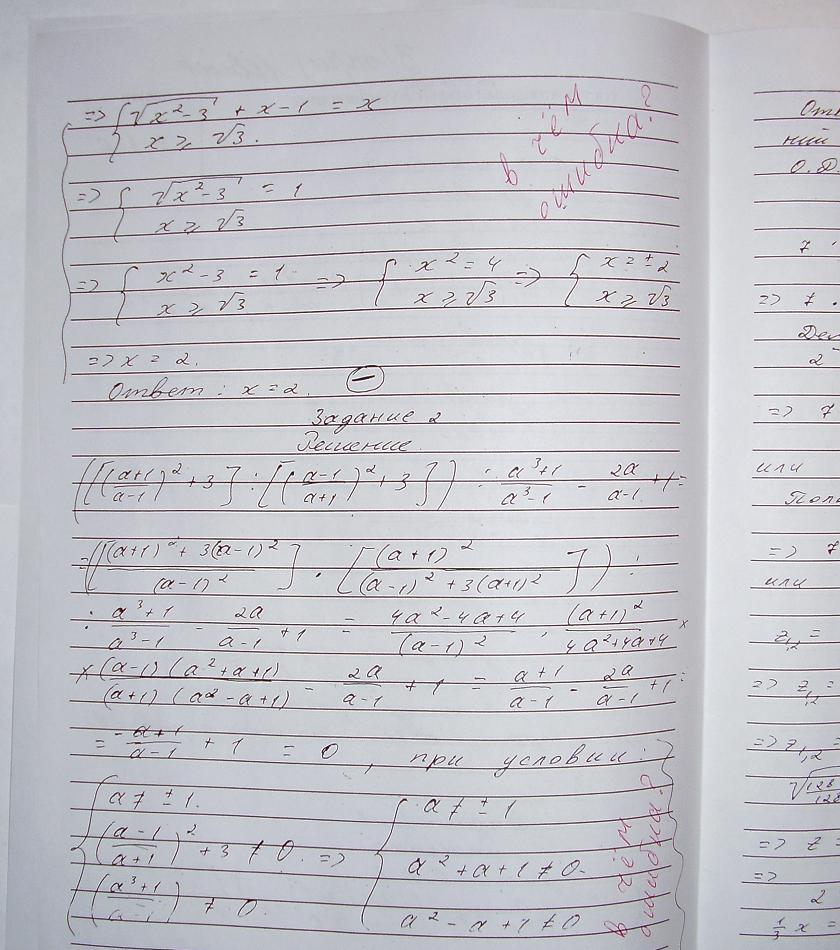 => { √(x² - 3) + x - 1 = x
x ≥ √3.
в чём
ошибка?
=> { √(x² - 3) = 1
x ≥ √3
=> { x² - 3 = 1 => { x² = 4 => { x = ± 2
x ≥ √3 x ≥ √3 x ≥ √3
=> x = 2.
Ответ: x = 2. ⊖
Задание 2
Решение.
([((a+1)/(a-1))² + 3] : [((a-1)/(a+1))² + 3]) : (a³+1)/(a³-1) - 2a/(a-1) + 1 =
= ([((a+1)² + 3(a-1)²)/(a-1)²] · [(a+1)²/((a-1)² + 3(a+1)²)]) :
: (a³+1)/(a³-1) - 2a/(a-1) + 1 = (4a²-4a+4)/(a-1)² · (a+1)²/(4a²+4a+4) ×
× ((a-1)(a²+a+1))/((a+1)(a²-a+1)) - 2a/(a-1) + 1 = (a+1)/(a-1) - 2a/(a-1) + 1 =
= (-a+1)/(a-1) + 1 = 0, при условии:
{ a ≠ ± 1. { a ≠ ± 1
((a-1)/(a+1))² + 3 ≠ 0. => a² + a + 1 ≠ 0.
((a³+1)/(a³-1)) ≠ 0. a² - a + 1 ≠ 0
в чём
ошибка?
О.Д.
7
=> 7 .
2
=> 7
или
=> 7
или
z₁,₂ =
=> z₁,₂
=> z₁,₂ =
=> z =
=>
2
1/3 x =